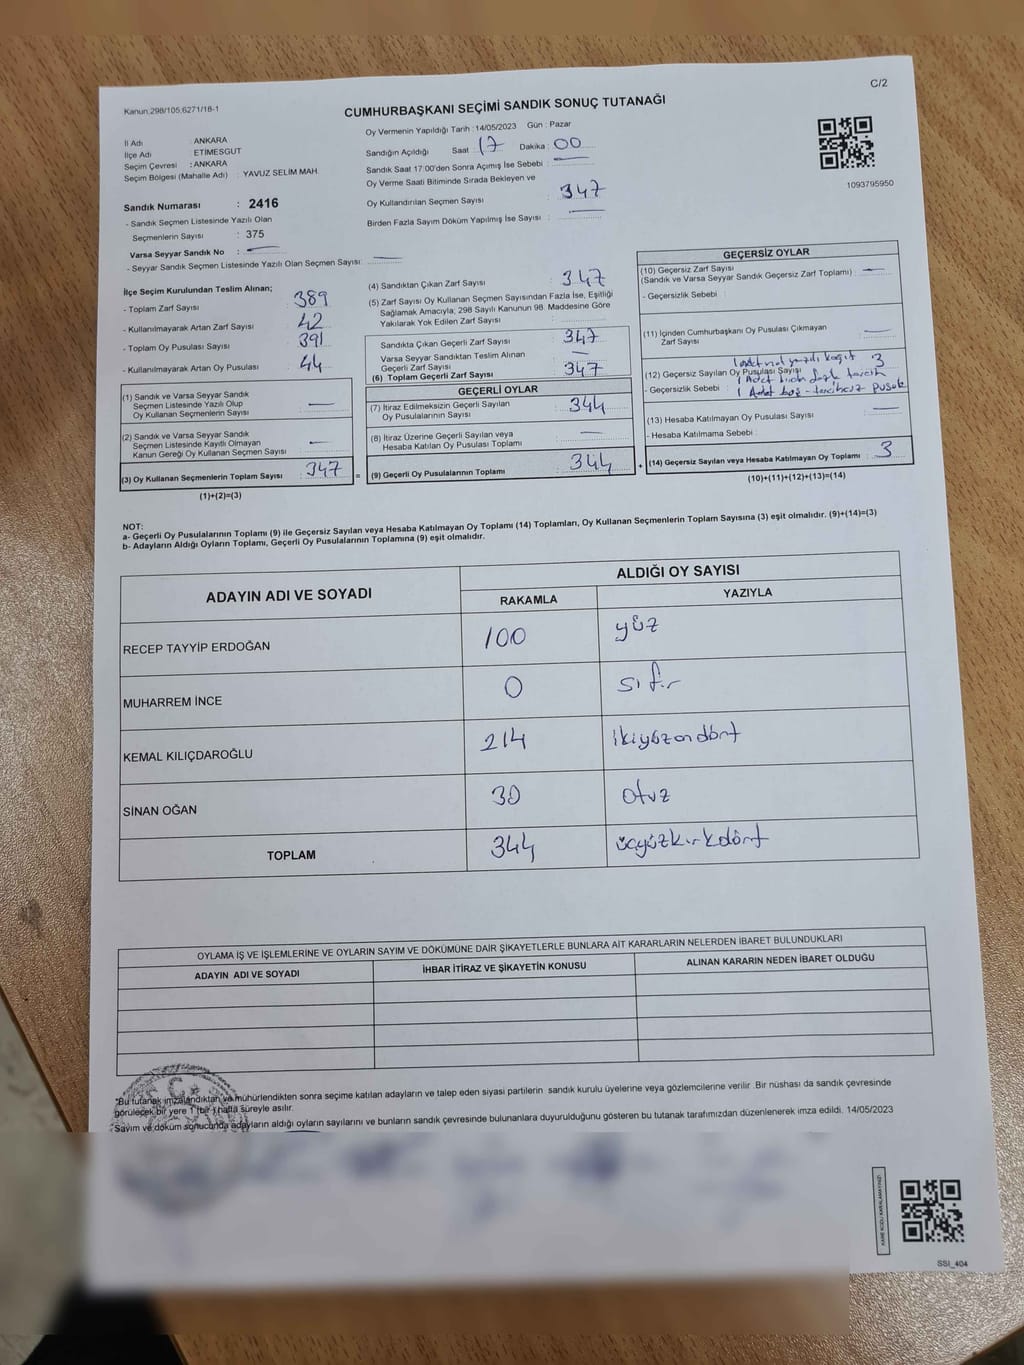 C/2
Kanun:298/105,6271/18-1
CUMHURBAŞKANI SEÇİMİ SANDIK SONUÇ TUTANAĞI
İl Adı : ANKARA
İlçe Adı : ETİMESGUT
Seçim Çevresi : ANKARA
Seçim Bölgesi (Mahalle Adı) : YAVUZ SELİM MAH.
Oy Vermenin Yapıldığı Tarih : 14/05/2023 Gün : Pazar
Sandığın Açıldığı Saat : 17 Dakika : 00
Sandık Saat 17:00'den Sonra Açımış İse Sebebi :
Oy Verme Saati Bitiminde Sırada Bekleyen ve
Oy Kullandırılan Seçmen Sayısı : 347
Birden Fazla Sayım Döküm Yapılmış İse Sayısı :
1093795950
Sandık Numarası : 2416
- Sandık Seçmen Listesinde Yazılı Olan
Seçmenlerin Sayısı : 375
Varsa Seyyar Sandık No :
- Seyyar Sandık Seçmen Listesinde Yazılı Olan Seçmen Sayısı :
İlçe Seçim Kurulundan Teslim Alınan;
- Toplam Zarf Sayısı : 389
- Kullanılmayarak Artan Zarf Sayısı : 42
- Toplam Oy Pusulası Sayısı : 391
- Kullanılmayarak Artan Oy Pusulası : 44
(1) Sandık ve Varsa Seyyar Sandık
Seçmen Listesinde Yazılı Olup
Oy Kullanan Seçmenlerin Sayısı :
(2) Sandık ve Varsa Seyyar Sandık
Seçmen Listesinde Kayıtlı Olmayan
Kanun Gereği Oy Kullanan Seçmen Sayısı :
(3) Oy Kullanan Seçmenlerin Toplam Sayısı : 347
(1)+(2)=(3)
(4) Sandıktan Çıkan Zarf Sayısı : 347
(5) Zarf Sayısı Oy Kullanan Seçmen Sayısından Fazla İse, Eşitliği
Sağlamak Amacıyla; 298 Sayılı Kanunun 98. Maddesine Göre
Yakılarak Yok Edilen Zarf Sayısı :
Sandıkta Çıkan Geçerli Zarf Sayısı : 347
Varsa Seyyar Sandıktan Teslim Alınan
Geçerli Zarf Sayısı :
(6) Toplam Geçerli Zarf Sayısı : 347
GEÇERLİ OYLAR
(7) İtiraz Edilmeksizin Geçerli Sayılan
Oy Pusulalarının Sayısı : 344
(8) İtiraz Üzerine Geçerli Sayılan veya
Hesaba Katılan Oy Pusulası Toplamı :
= (9) Geçerli Oy Pusulalarının Toplamı : 344
GEÇERSİZ OYLAR
(10) Geçersiz Zarf Sayısı
(Sandık ve Varsa Seyyar Sandık Geçersiz Zarf Toplamı) :
- Geçersizlik Sebebi :
(11) İçinden Cumhurbaşkanı Oy Pusulası Çıkmayan
Zarf Sayısı :
(12) Geçersiz Sayılan Oy Pusulası Sayısı : 3
- Geçersizlik Sebebi :
(13) Hesaba Katılmayan Oy Pusulası Sayısı :
- Hesaba Katılmama Sebebi :
+ (14) Geçersiz Sayılan veya Hesaba Katılmayan Oy Toplamı : 3
(10)+(11)+(12)+(13)=(14)
NOT:
a- Geçerli Oy Pusulalarının Toplamı (9) ile Geçersiz Sayılan veya Hesaba Katılmayan Oy Toplamı (14) Toplamları, Oy Kullanan Seçmenlerin Toplam Sayısına (3) eşit olmalıdır. (9)+(14)=(3)
b- Adayların Aldığı Oyların Toplamı, Geçerli Oy Pusulalarının Toplamına (9) eşit olmalıdır.
ADAYIN ADI VE SOYADI ALDIĞI OY SAYISI
RAKAMLA YAZIYLA
RECEP TAYYİP ERDOĞAN 100 yüz
MUHARREM İNCE 0 sıfır
KEMAL KILIÇDAROĞLU 214 ikiyüzondört
SİNAN OĞAN 30 otuz
TOPLAM 344 üçyüzkırkdört
OYLAMA İŞ VE İŞLEMLERİNE VE OYLARIN SAYIM VE DÖKÜMÜNE DAİR ŞİKAYETLERLE BUNLARA AİT KARARLARIN NELERDEN İBARET BULUNDUKLARI
ADAYIN ADI VE SOYADI İHBAR İTİRAZ VE ŞİKAYETİN KONUSU ALINAN KARARIN NEDEN İBARET OLDUĞU
*Bu tutanak imzalandıktan ve mühürlendikten sonra seçime katılan adayların ve talep eden siyasi partilerin sandık kurulu üyelerine veya gözlemcilerine verilir .Bir nüshası da sandık çevresinde
görülecek bir yere 1 (bir ) hafta süreyle asılır.
Sayım ve döküm sonucunda adayların aldığı oyların sayılarını ve bunların sandık çevresinde bulunanlara duyurulduğunu gösteren bu tutanak tarafımızdan düzenlenerek imza edildi. 14/05/2023
KARE KODU KARALAMAYINIZ!
SSI_404